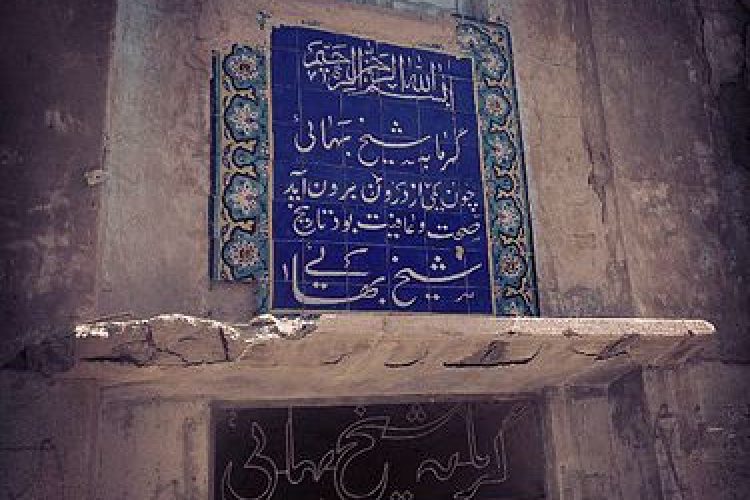 بسم الله الرحمن الرحیم
گرمابه شیخ بهائی
چون یکی از درون برون آید
صحت و عافیت بود تاریخ
شیخ بهائی
گرمابه شیخ بهائی